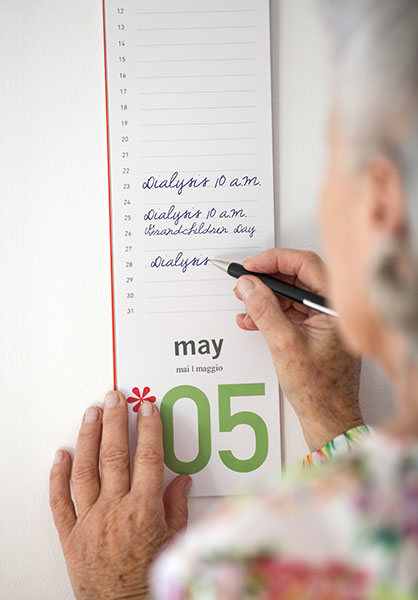 12
13
14
15
16
17
18
19
20
21
22
23 Dialysis 10 a.m.
24
25 Dialysis 10 a.m.
26 Grandchildren Day
27
28 Dialysis
29
30
31
may
mai | maggio
*05